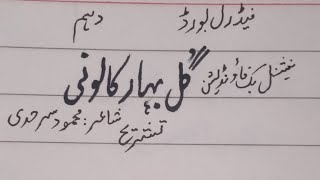 فیڈرل بورڈ دہم
نیشنل بک فاؤنڈیشن
گل بہار کالونی
شاعر: محمود سرحدی
تشریح